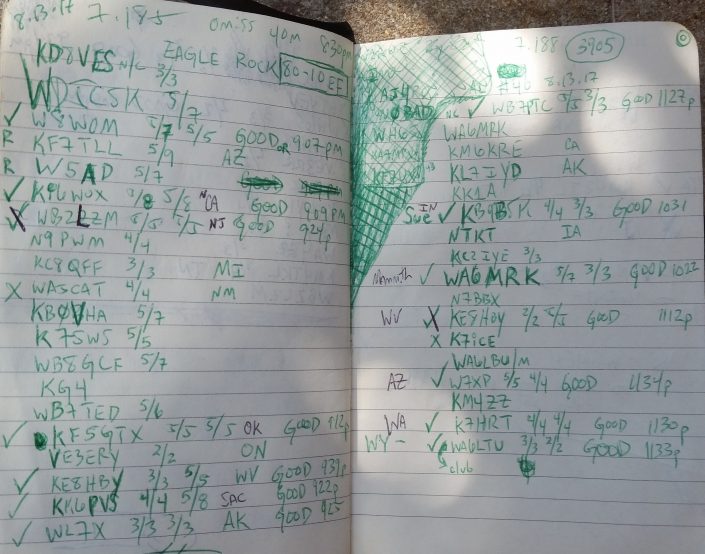 8.13.17 7.185 OMISS 40M 830pm
KD8VES N/C 3/3 EAGLE ROCK 80-10 EF
5/7
✓ W8WOM 5/7 5/5 GOOD OR 907PM
R KF7TLL 5/9 AZ
R W5AD 5/7
✓ KI6WOX 5/8 5/8 N CA GOOD 909PM
X WB2LZM 5/5 5/5 NJ GOOD 924p
N9PWM 4/4
KC8QFF 3/3 MI
X WA5CAT 4/4 NM
KBØVHA 5/7
K75WS 5/5
WB8GCF 5/7
KG4
WB7TED 5/6
✓ KF5GTX 5/5 5/5 OK GOOD 912p
VE3ERY 2/2 ON
✓ KE8HBY 3/3 5/5 WV GOOD 931p
✓ KK6PVS 4/4 5/8 SAC GOOD 922p
✓ WL7X 3/3 3/3 AK GOOD 925
7.188 3905
#40 8.13.17
NC ✓ WB7PTC 5/5 3/3 GOOD 1127p
WA6MRK
KM6KRE CA
KL7IYD AK
KK1A
Sue IN ✓ KB9BSK 4/4 3/3 GOOD 1031
N7KT IA
KC2IYE 3/3
Mammoth ✓ WA6MRK 5/7 3/3 GOOD 1022
N7BBX
WV X KE8HBY 2/2 5/5 GOOD 1112p
X K7ICE
WA6LBU/M
AZ ✓ W7XP 5/5 4/4 GOOD 1134p
KM4ZZ
WA ✓ K7HRT 4/4 4/4 GOOD 1130p
WY - ✓ WA6LTU 3/3 2/2 GOOD 1133p
club